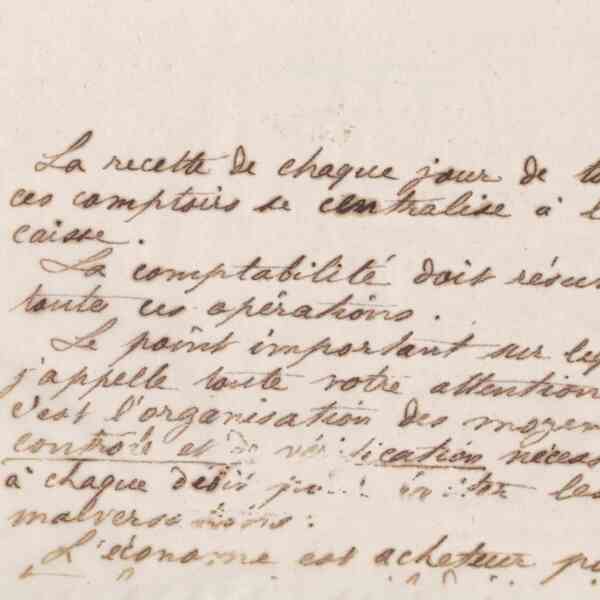 La recette de chaque jour de
ces comptoirs se centralise à
caisse.
La comptabilité doit
toutes ces opérations.
Le point important sur
j'appelle toute votre attention
c'est l'organisation des
contrôle et de vérification
à chaque les
malversations:
L'économe est acheteur